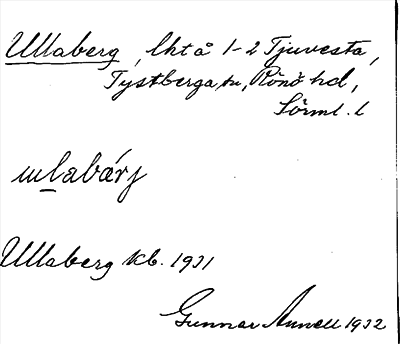 Ullaberg, lht å 1-2 Tjuvesta,
Tystberga sn, Rönö hd,
Sörml. l
ɯlabärj
Ullaberg kb. 1931
Gunnar Annell 1932